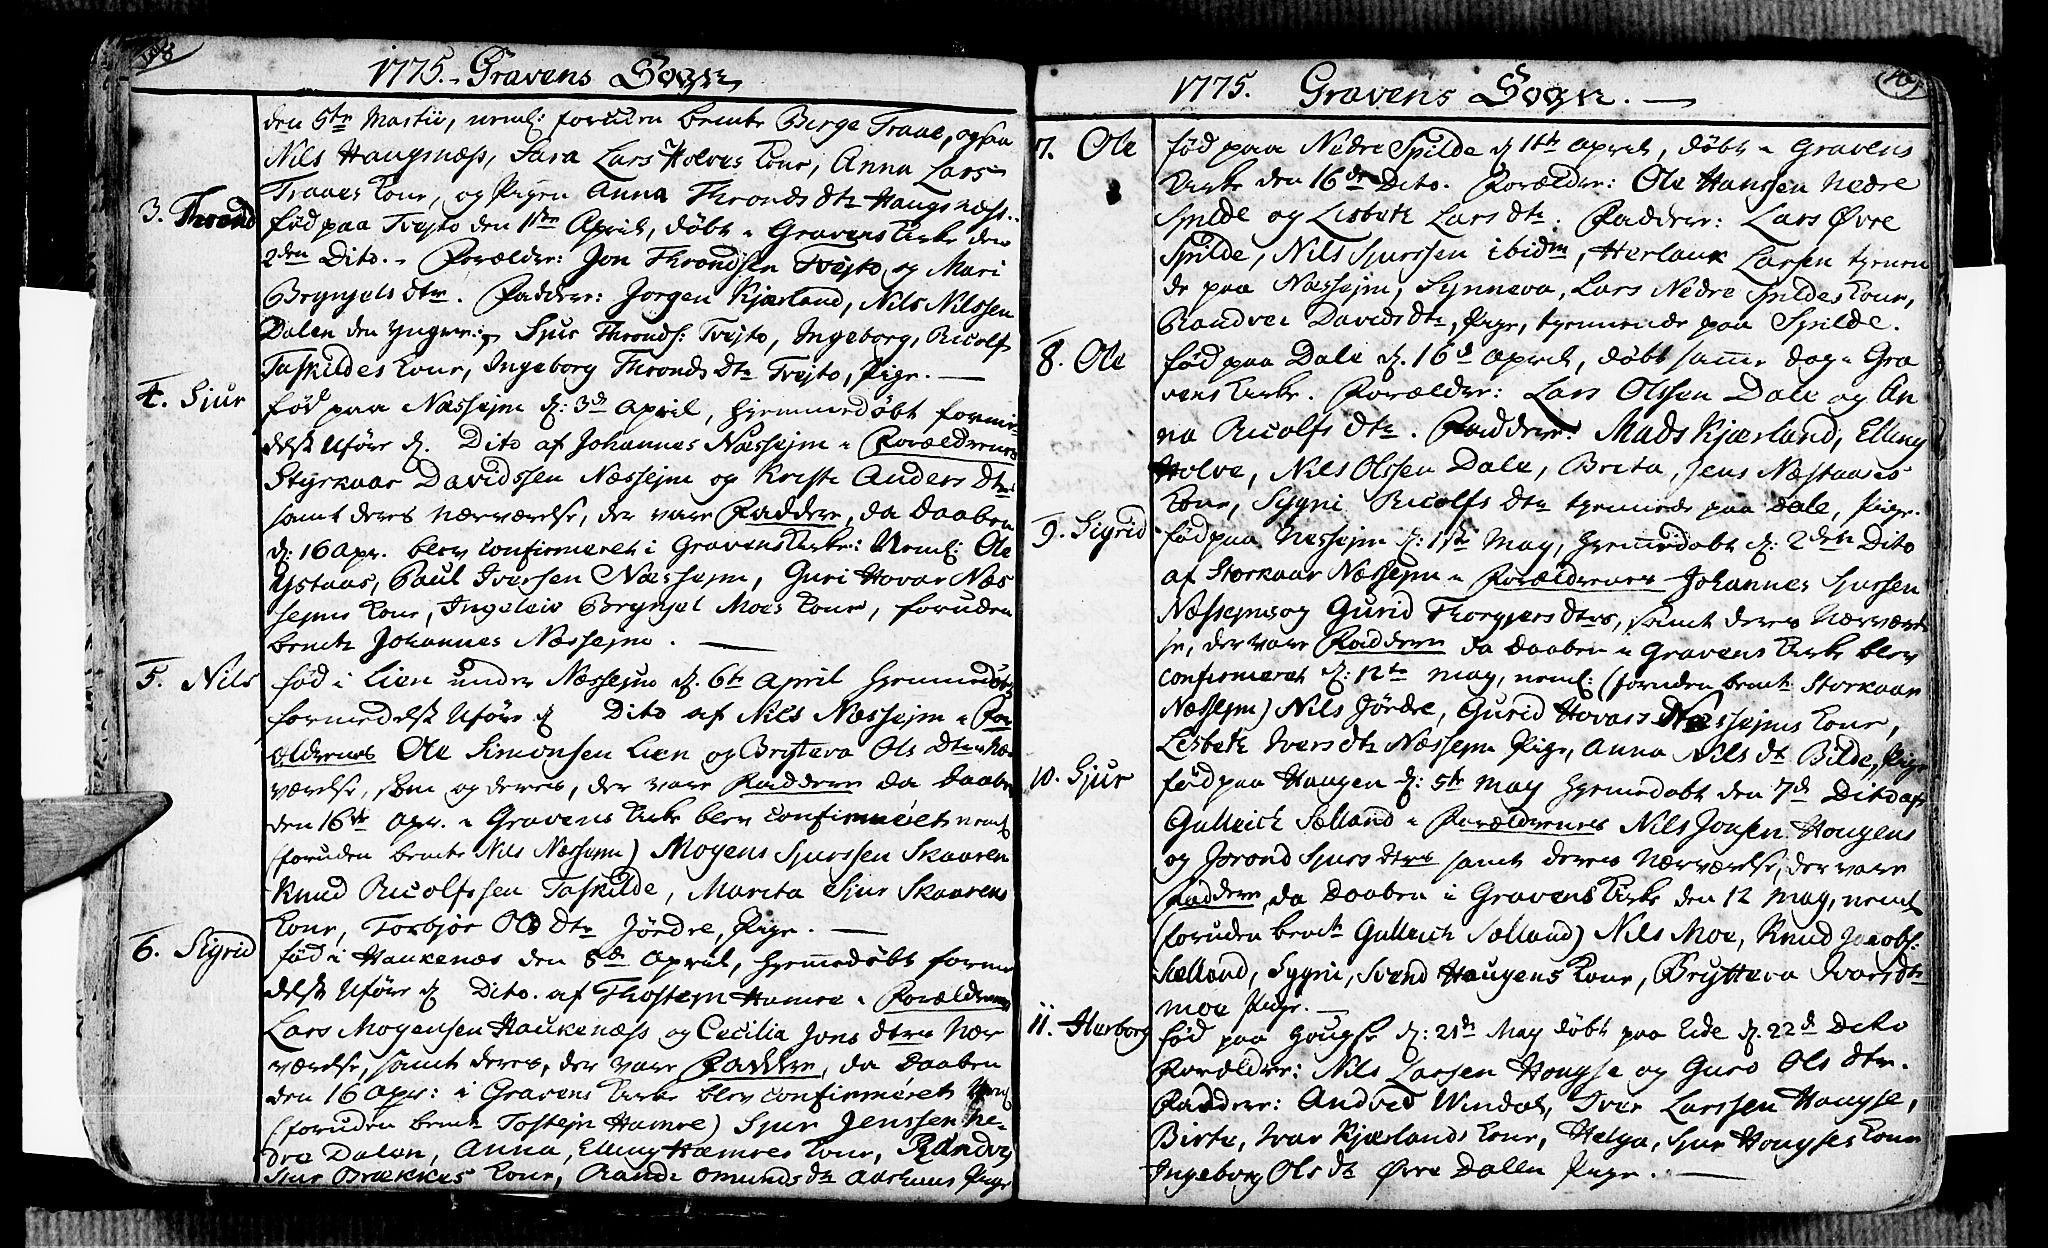 1775. Gravens Sogn
den 5te Martii, neml: foruden bemte Birge Traae, ogsaa
Nils Haugsnæss, Sara Lars Holves Kone, Anna Lars
Traaes Kone, og Pigen Anna Thronds dtr Haugsnæss.
3. Thrond
fød paa Tvejto den 1ste April, døbt i Gravens Kirke den
2den Dito. Forælder: Jon Throndsen Tvejto, og Mari
Brynjels dtr. Faddere: Jørgen Kjærland, Nils Nilssen
Dalen den yngere, Sjur Thronds: Tvejto, Ingeborg, Ricolf
Taskildes Kone, Ingeborg Thronds Dtr Tvejto, Pige.
4. Sjur
fød paa Næssejm d: 3de April, hjemmedøbt forme-
delst Uføre d. Dito af Johannes Næssejm i Forældrenes
Styrkaar Davidssen Næssejm og Kristi Anders Dtr
samt deres Nærværelse, der vare Faddere, da Daaben
d: 16 Apr. blev confirmeret i Gravens Kirke: Neml: Ole
Ystaas, Paul Iversen Næssejm, Guri Hovar Næs
sejms Kone, Ingeleiv Brynjel Moes Kone, foruden
bemte Johannes Næssejm.
5. Nils
fød i Lien under Næssejm d. 6te April hjemmedøbt
formedelst Uføre d. Dito af Nils Næssejm i For
ældrenes Ole Simonsen Lien og Bryteva Ols Dtrs Nær
værelse, som og deres, der vare Faddere da Daaben
den 16de Apr. i Gravens Kirke blev confirmeret neml
(foruden bemte Nils Næssejm) Mogens Sjurssen Skaaren
Knud Ricolfssen Taskilde, Marita Sjur Skaarens
Kone, Torbjør Ols Dtr Jördre, Pige.
6. Sigrid
fød i Haukenæs den 8de April, hjemmedøbt forme
delst Uføre d. Dito. af Thostejn Hamre i Forældrenes
Lars Mogensen Haukenæss og Cecilia Jons dtrs Nær
værelse, samt deres, der vare Faddere, da Daaben
den 16 Apr: i Gravens Kirke blev confirmeret Neml
(foruden bemte Tostejn Hamre) Sjur Jenssen Ne-
dre Dalen, Anna, Elling Hamres Kone, Randve
Sjur Brækkes Kone, Randi Omunds dtr Aashems Pige
1775. Gravens Sogn.
7. Ole
fød paa Nedre Spilde d. 11te April, døbt i Gravens
Kirke den 16de Dito. Forælder: Ole Hanssen Nedre
Spilde og Lisbeth Lars dtr. Faddere: Lars Øvre
Spilde, Nils Sjurssen ibidm, Herlauk Larsen tjenen
de paa Næssejm, Synneva, Lars Nedre Spildes Kone,
Randvei Davids dtr, Pige, tjenende paa Spilde.
8. Ole
fød paa Dale d. 16d April, døbt samme dag i Gra
vens Kirke. Forælder: Lars Olssen Dale og An
na Ricolfs dtr. Faddere: Mads Kjærland, Elling
Holve, Nils Olssen Dale, Brita, Jens Næstaases
Kone, Sygni Ricolfs Dtr tjenende paa Dale, Pige.
9. Sigrid
fød paa Nessejm d: 1ste May, hjemmedøbt d: 2den Dito
af Storkaar Næssejm i Forældrenes Johannes Sjurssen
Næssejms og Gurid Thorgjers dtrs, samt deres Nærværel
se, der vare Faddere da Daaben i Gravens Kirke blev
confirmeret d: 12te May, neml: (foruden bemte Storkaar
Næssejm) Nils Jördre, Gurid Hovars Næssejms Kone,
Lisbeth Ivers dtr Næssejm Pige, Anna Nils dtr Bilde, Pige
10. Sjur
fød paa Haugen d: 5te May hjemmedøbt den 7de Dito af
Gulleich Sælland i Forældrenes Nils Jonsen Hougens
og Jorond Sjurs dtrs samt deres Nærværelse, der vare
Faddere, da Daaben i Gravens Kirke den 12 May, neml
(foruden bemte Gulleich Sælland) Nils Moe, Knud Jacobs:
Sælland, Sygni, Svend Haugens Kone, Brytteva Ivars dtr
Moe Pige.
11. Herborg
fød paa Hougse d: 21de May døbt paa Eide d. 22d Dito
Forælder: Nils Larsen Hougse og Guro Ols dtr.
Faddere: Andved Windal, Iver Larssen Hougse,
Birte, Ivar Kjærlands Kone, Helga, Sjur Hougses Kone
Ingeborg Ols dtr Øvre Dalen Pige.